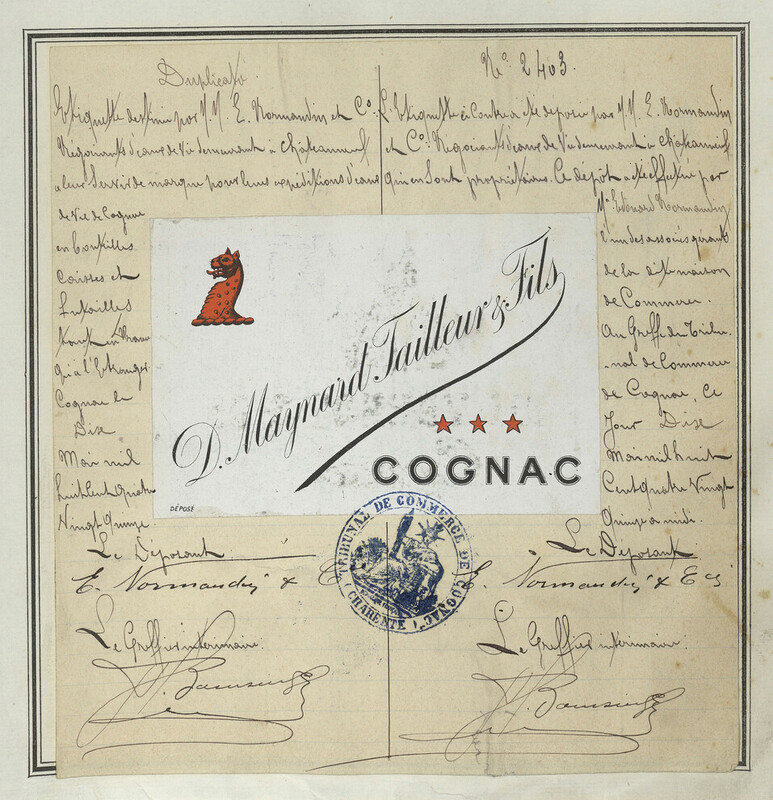 Duplicata.
Etiquette destinée par MM. E. Normandin et Co.
Négociants d'eaux de Vie demeurant à Châteauneuf
à leur Servir de marque pour leurs expéditions d'eaux
de Vie de Cognac
en bouteilles
caisses et
futailles
tant en
qu'à l'Etranger
Cognac le
Dix
Mai mil
huit Cent quatre
Vingt quinze
Le Déposant
E. Normandin & C
Le Greffier intérimaire.
No. 2403.
L'Etiquette ci-Contre a été déposée par MM. E. Normandin
et Co. Négociants d'eaux de Vie demeurant à Châteauneuf
qui en Sont propriétaires. Ce dépôt a été effectué par
Mr. Edouard Normandin
l'un des associés gérants
de la dite maison
de Commerce.
Au Greffe du Tribu-
-nal de Commerce
de Cognac, Ce
Jour Dix
Mai mil huit
Cent quatre Vingt
quinze à midi.
Le Déposant
E. Normandin & Cie
Le Greffier intérimaire.
D. Maynard Tailleur & Fils
COGNAC
DÉPOSÉ
TRIBUNAL DE COMMERCE DE COGNAC
(CHARENTE)